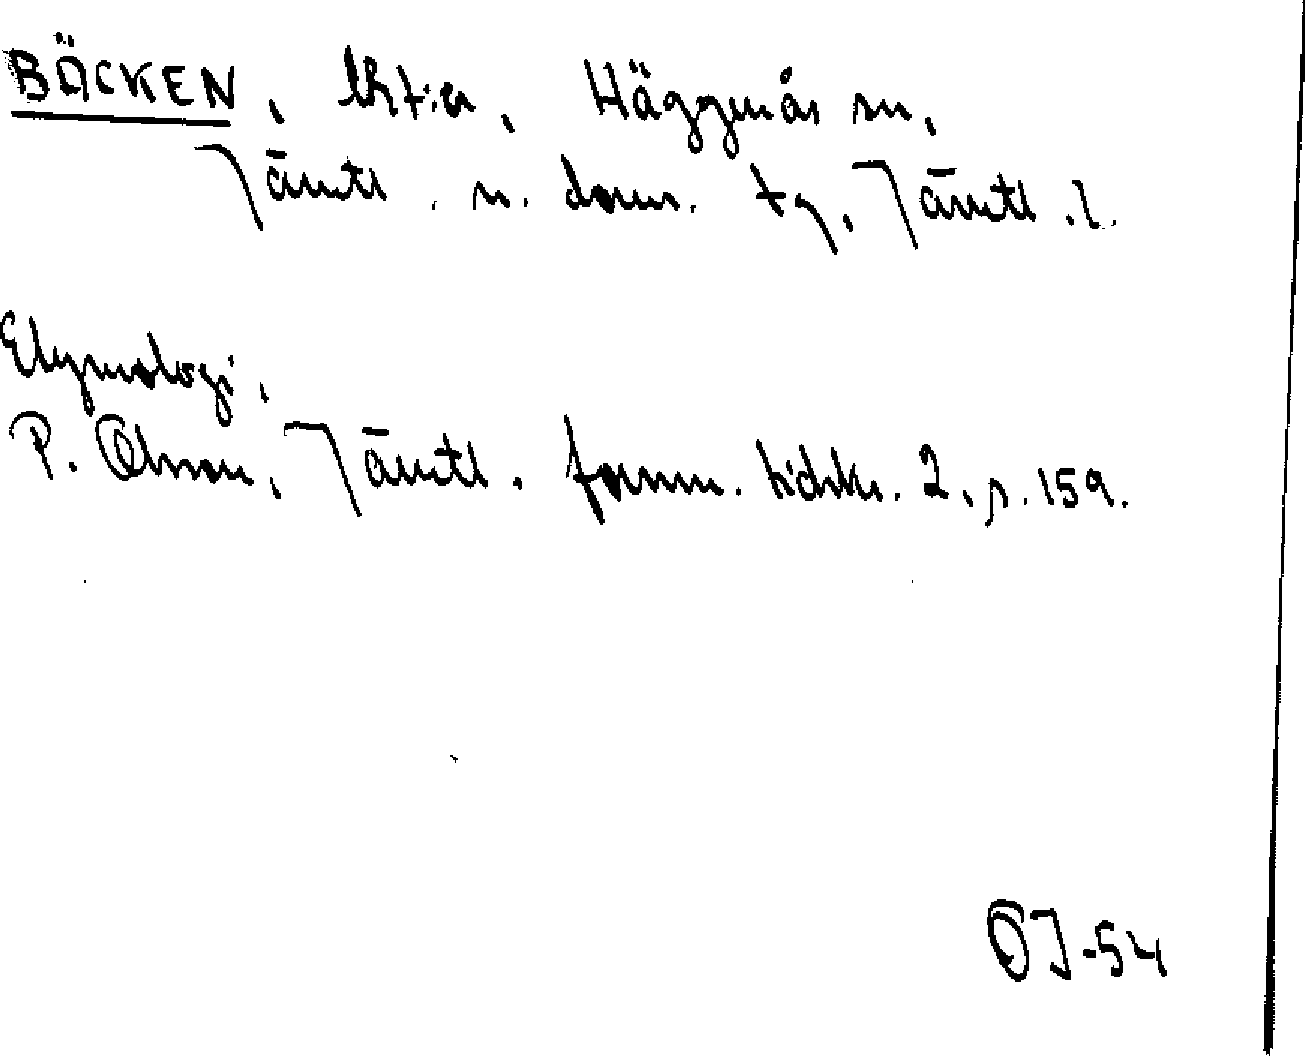 BÄCKEN, lht:er, Häggenås sn,
Jämtl. n. doms. tg, Jämtl. l.
Etymologi,
P. Olsson, Jämtl. fornm. tidskr. 2, s. 159.
OJ-54